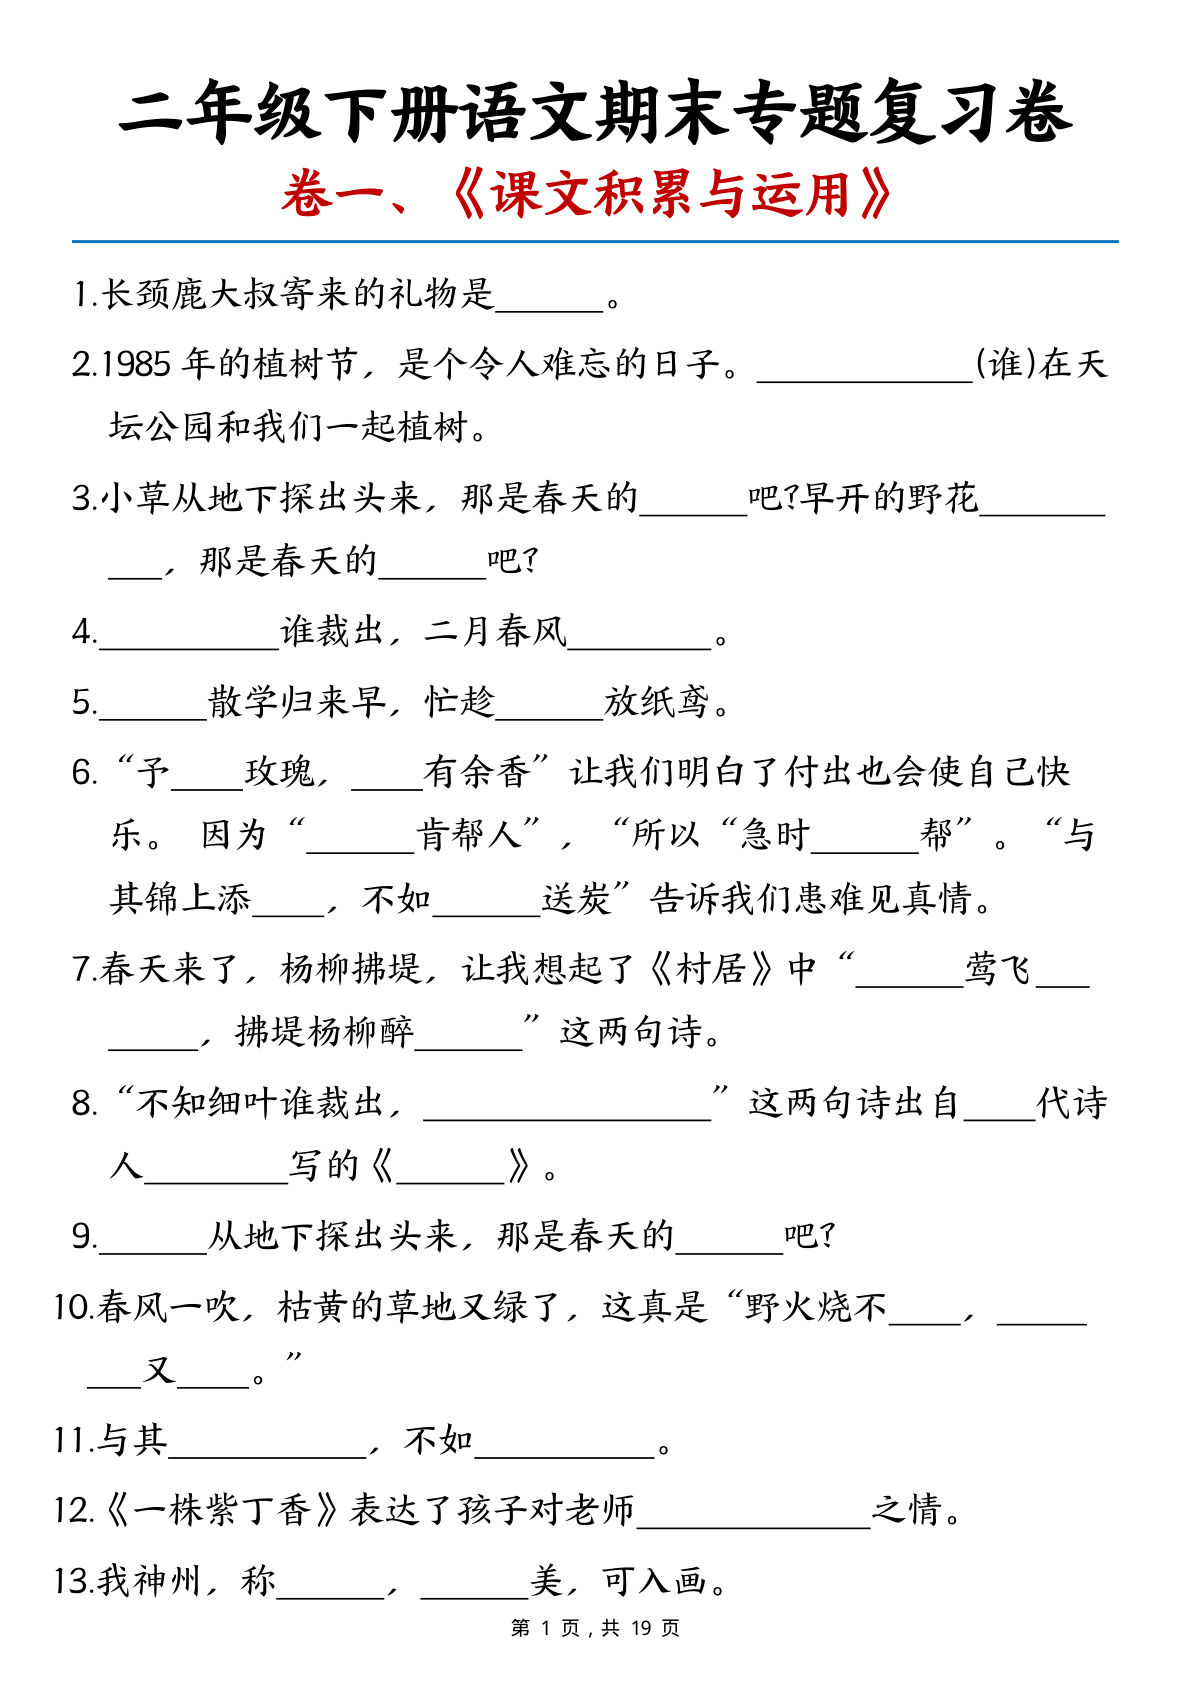 二年级下册语文期末专题复习卷
卷一、《课文积累与运用》
1.长颈鹿大叔寄来的礼物是______。
2.1985 年的植树节，是个令人难忘的日子。____________(谁)在天
坛公园和我们一起植树。
3.小草从地下探出头来，那是春天的______吧?早开的野花_______
___，那是春天的______吧?
4.__________谁裁出，二月春风________。
5.______散学归来早，忙趁______放纸鸢。
6.“予____玫瑰，____有余香”让我们明白了付出也会使自己快
乐。 因为“______肯帮人”，“所以“急时______帮”。“与
其锦上添____，不如______送炭”告诉我们患难见真情。
7.春天来了，杨柳拂堤，让我想起了《村居》中“______莺飞___
_____，拂堤杨柳醉______”这两句诗。
8.“不知细叶谁裁出，________________”这两句诗出自____代诗
人________写的《______》。
9.______从地下探出头来，那是春天的______吧?
10.春风一吹，枯黄的草地又绿了，这真是“野火烧不____，_____
___又____。”
11.与其___________，不如__________。
12.《一株紫丁香》表达了孩子对老师_____________之情。
13.我神州，称______，______美，可入画。
第 1 页，共 19 页